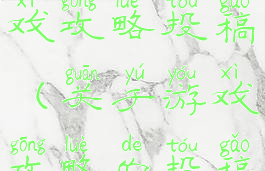 xì gōng lüè tóu gǎo
戏攻略投稿
guān yú yóu xì
(关于游戏
gōng lüè de tóu gǎo
攻略的投稿